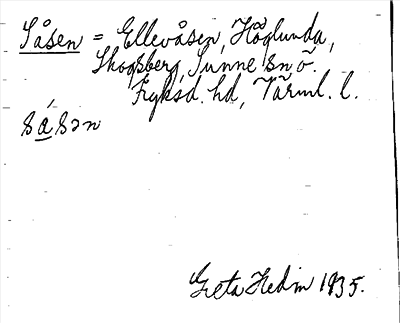 Såsen = Ellevåsen, Höglunda,
Skogsberg, Sunne sn ö.
Fryksd. hd, Värml. l.
såsən
Greta Hedin 1935.